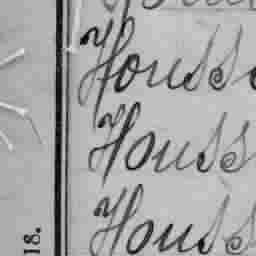 Housso
Houss
Houss
18.